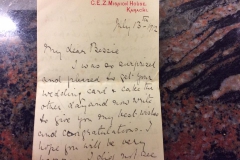 C.E.Z. Mission House,
Karachi.
July 13th 192
My dear Bessie
I was so surprised
and pleased to get your
wedding card & cake the
other day and now write
to give you my best wishes
and congratulations. I
hope you will be very